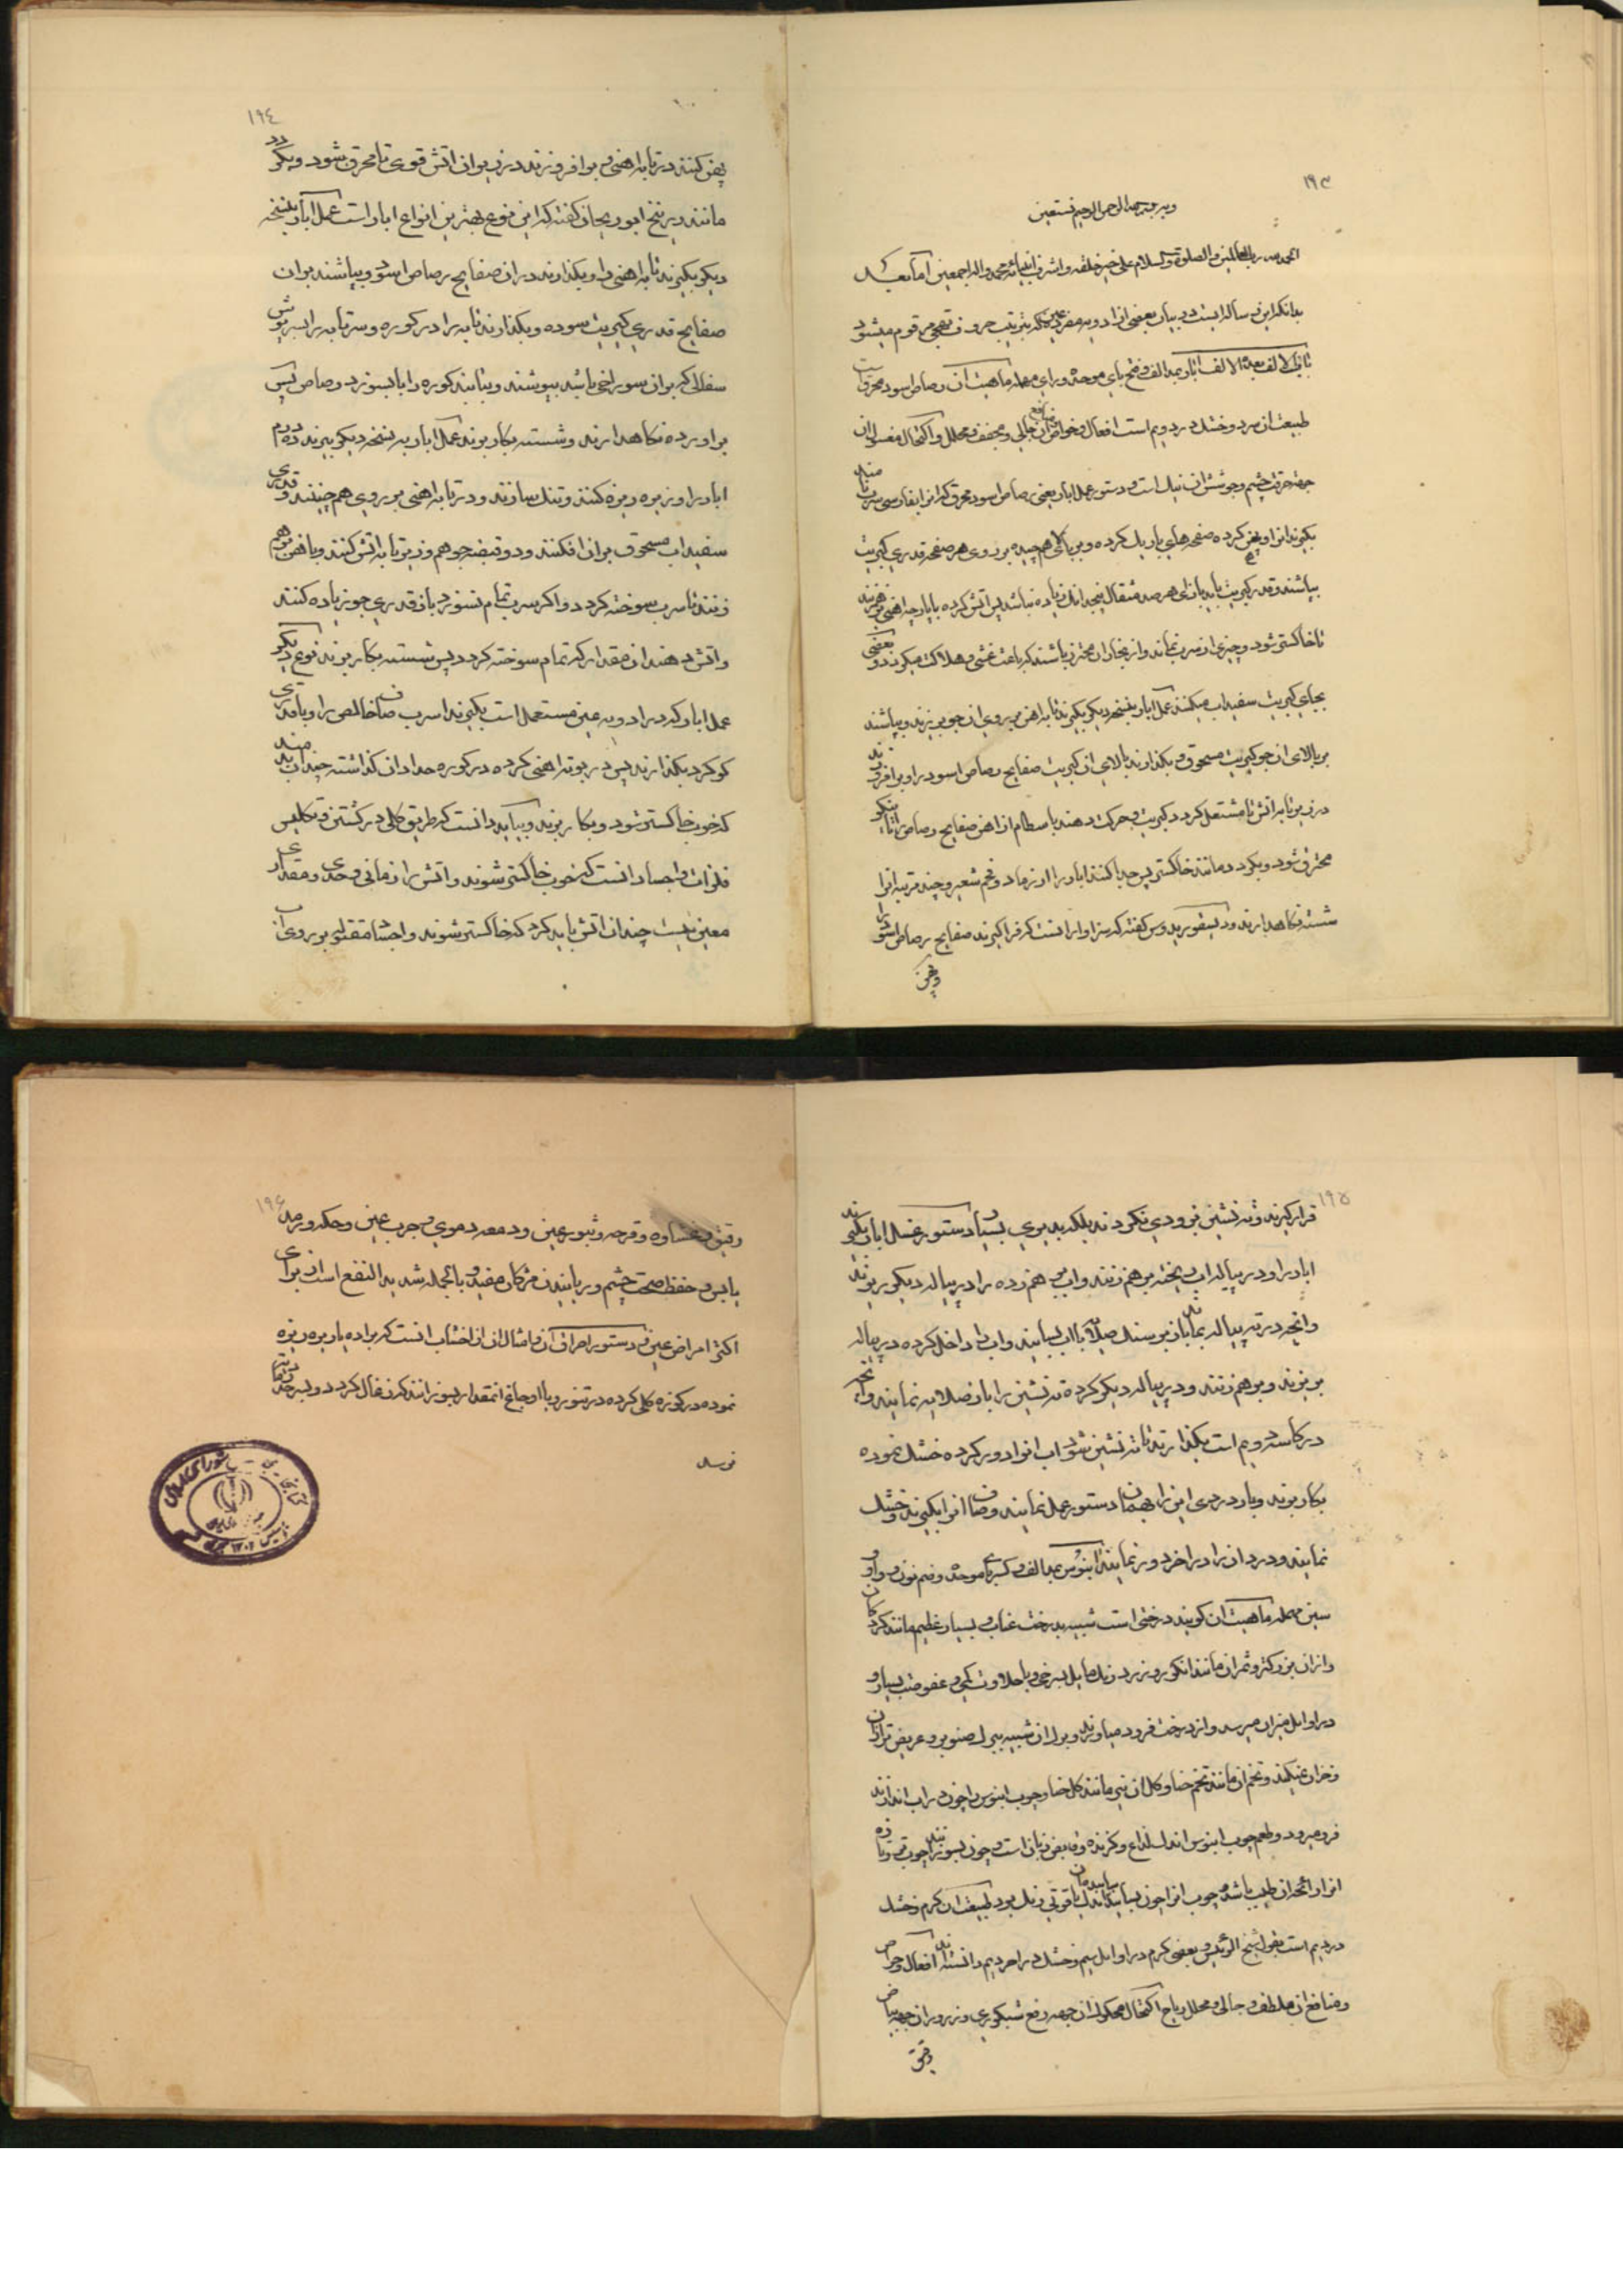 ۱۹۳
بسم الله الرحمن الرحیم نستعین
الحمد لله رب العالمین و الصلوة و السلام علی خیر خلقه و اشرف انبیائه محمد و اله اجمعین اما بعد
بدانکه این رساله ایست در بیان بعضی از ادویه مفرده عین که بترتیب حروف تهجی مرقوم میشود
الالف ابار بمد الف و فتح بای موحده و رای مهمله ماهیت آن رصاص اسود محرق است
طبیعت ان سرد و خشک در دویم است افعال و خواص و منافع آن جالی و مجفف و محلل و اکتحال مغسول ان
جهة حرقت چشم و جوشش ان نیک است و دستور عمل ابار یعنی رصاص اسود محرق که انرا بفارسی سرب نامند
بگیرند انرا و پهن کرده صفحه های باریک کرده و بر بالای هم چیده بر روی هر صفحه قدری کبریت
بپاشند و قدر کبریت باید بازای هر صد مثقال پنجدانک زیاده نباشد پس اتش کرده با پارچه اهنی برهم زنند
تا خاکستر شود و چیزی از سرب نماند و از بخار ان محترز باشند که باعث غشی و هلاکت میکردد و بعضی
بجای کبریت سفیداب میکنند عمل ابار بنسخه دیکر بگیرند تابه اهن بر روی ان جو بریزند و بپاشند
بر بالای ان جو کبریت مسحوق و بگذارند بالای ان کبریت صفایح رصاص اسود را و برافروزند
در زیر تابه اتش تا مشتعل کردد کبریت و حرکت دهند با سطام از اهن صفایح رصاص را تا نیکو
محترق شود و بگردد مانند خاکستر پس جدا کنند ابار را از رماد و فحم شعیر و چند مرتبه انرا
شسته نگاهدارند و دیسقوریدوس گفته که سزاوار انست که فرا گیرند صفایح رصاص اسود را
و پهن
۱۹۴
پهن کنند در تابه اهنی و برافروزند در زیر ان اتش قوی تا محرق شود و بگردد
مانند زرنیخ ابو ریحان گفته که این نوع بهترین انواع ابار است عمل ابار بنسخه
دیکر بگیرند تابه اهنی را و بگذارند در ان صفایح رصاص اسود و بپاشند بر ان
صفایح قدری کبریت سوده و بگذارند تابه را در کوره و سر تابه را بسرپوش
سفالی که بر ان سوراخی باشد بپوشند و بتابند کوره را تا بسوزد رصاص پس
براورده نگاهدارند و شسته بکار برند عمل ابار به نسخه دیکر بگیرند ده درم
ابار را و ریزه ریزه کنند و تنک سازند و در تابه اهنی بر روی هم چینند و قدری
سفیداب مسحوق بر ان افکنند و دو قبضه جو هم و زیر تابه اتش کنند و با اهن برهم
زنند تا سرب سوخته کردد و اگر سرب تمام نسوزد باز قدری جو زیاده کنند
و اتش دهند ان مقدار که تمام سوخته کردد پس شسته بکار برند نوع دیکر
عمل ابار که در ادویه عین مستعمل است بگیرند اسرب صاف خالص را و با قدری
کوکرد بگذارند پس در بوته اهنی کرده در کوره حدادان گذاشته چندان بدمند
که خوب خاکستر شود و بکار برند و بباید دانست که طریق کلی در کشتن و تکلیس
فلزات و اجساد انست که خوب خاکستر شوند و اتش را زمانی و حدی و مقداری
معین نیست چندان اتش باید کرد که خاکستر شوند و اجسام ثقیل بر روی آب
۱۹۵
قرار گیرند و ته نشین نزودی نکردند بلکه بدیری بسیار دستور غسل ابار بگیرند
ابار را و در پیاله اب ریخته برهم زنند و اب برهم زده را در پیاله دیکر بریزند
و انچه در ته پیاله بماند باز بر سنک صلایه با اب بسایند و اب را داخل کرده در پیاله
بریزند و برهم زنند و در پیاله دیکر کرده ته نشین را باز صلایه نمایند و انچه
در کاسه دویم است بگذارند تا ته نشین شود اب انرا دور کرده خشک نموده
بکار برند و باز دردی این را بهمان دستور عمل نمایند و صاف انرا بگیرند و خشک
نمایند و درد ان را در اخر دور نمایند ابنوس بمد الف و کسر بای موحده و ضم نون و واو و
سین مهمله ماهیت ان گویند درختی است شبیه بدرخت عناب و بسیار عظیم مانند گردکان
و از ان بزرکتر و ثمر ان مانند انکور و زرد رنک مایل بسرخی و با حلاوت کمی و عفوصت بسیار و
در اوایل میزان میرسد و از درخت فرود میاورند و برک ان شبیه ببرک صنوبر و عریض تر از ان
و خزان نمیکند و تخم ان مانند تخم حنا و گل ان نیز مانند گل حنا و چوب ابنوس را چون در اب اندازند
فرو میرود و طعم چوب ابنوس اندک لذاع و گزنده و قابض زبان است و چون بسوزند چوب تر و تازه
انرا رائحه ان طیب باشد و چوب انرا چون بسایند ساییده ان یاقوتی رنک بود طبیعت ان گرم و خشک
در دیم است بقول شیخ الرئیس و بعضی گرم در اوایل سیم و خشک در اخر دیم دانسته اند افعال و خواص
و منافع ان ملطف و جالی و محلل ریاح اکتحال محکوک ان جهه رفع شبکوری و زرور ان جهه بیاض
رقیق
۱۹۶
رقیق و غشاوه و قرحه و بثور عین و دمعه دموی و جرب عین و حکه و رمد
یابس و حفظ صحت چشم و رویانیدن مژکان مفید و بالجمله شدید النفع است از برای
اکثر امراض عین و دستور احراق آن و امثال ان از اخشاب انست که براده یا ریزه ریزه
نموده در کوزه گلی کرده در تنور و یا اوجاغ انقدر بسوزانند که زغال کردد و بسرحد رماد
نرسد